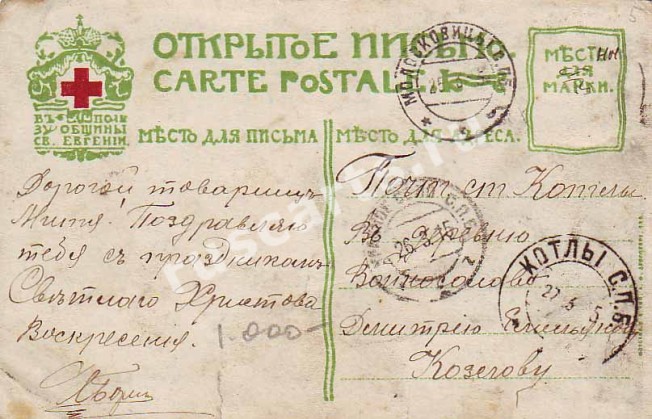 ОТКРЫТОЕ ПИСЬМО
CARTE POSTALE
МѢСТО
ДЛЯ
МАРКИ.
ВЪ ПОЛЬ
ЗУ ОБЩИНЫ
СВ. ЕВГЕНІИ.
МѢСТО ДЛЯ ПИСЬМА
МѢСТО ДЛЯ АДРЕСА.
Дорогой товарищъ
Митя! Поздравляю
тебя съ праздникомъ
Свѣтлаго Христова
Воскресенія.
1.000-
Почт ст Котлы
Въ деревню
Войносолово
Дмитрію
Козлову
МОЛОСКОВИЦЫ С.П.Б.
26.3.15
КОТЛЫ С.П.Б.
27 3 5